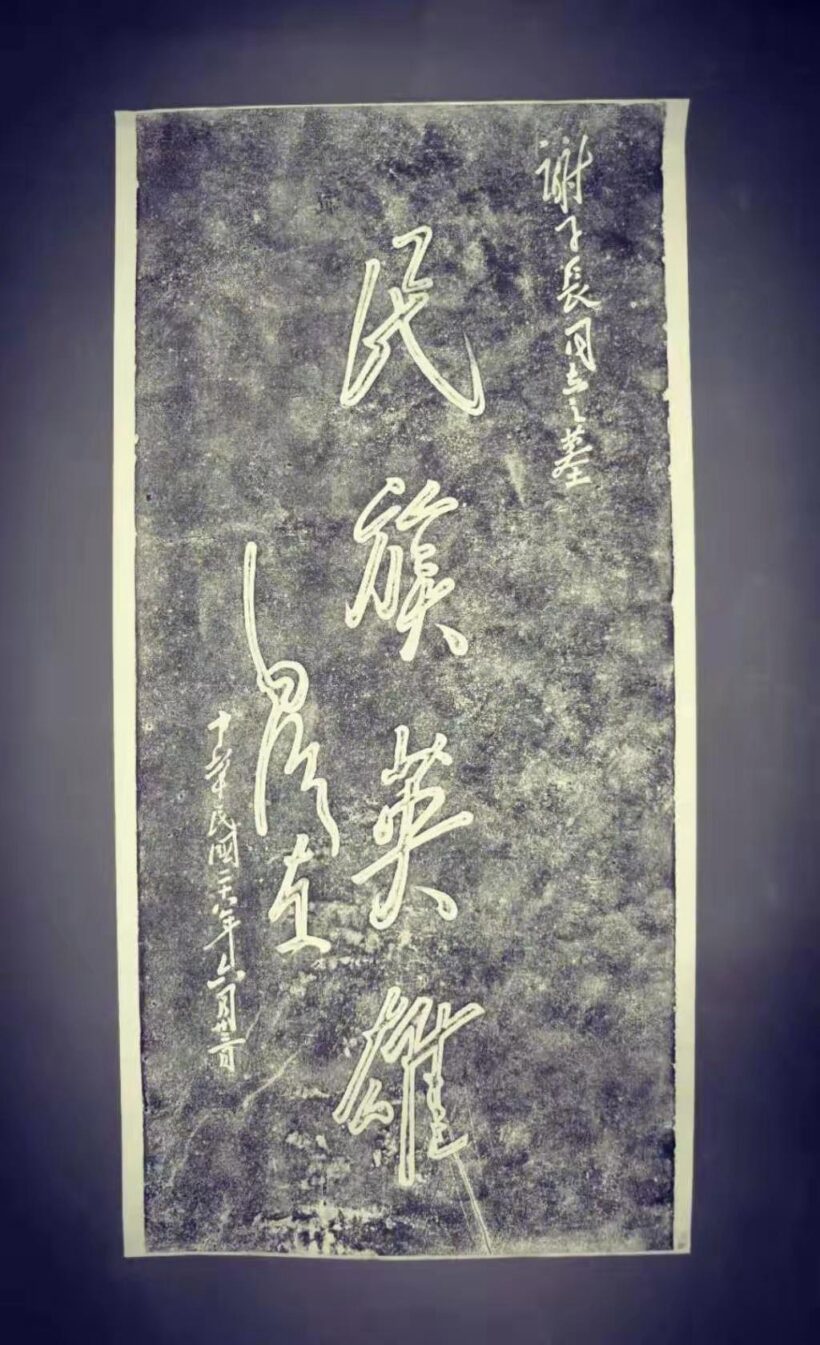 謝子長同志之墓
民族英雄
毛澤東
民國二十八年六月